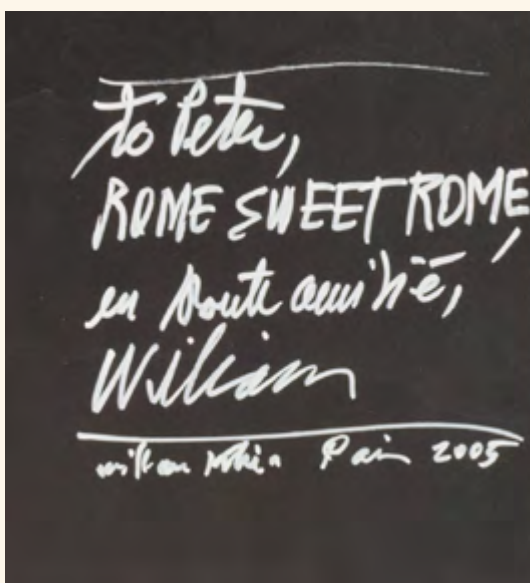 to Peter,
ROME SWEET ROME,
en toute amitié,
William
william Paris 2005